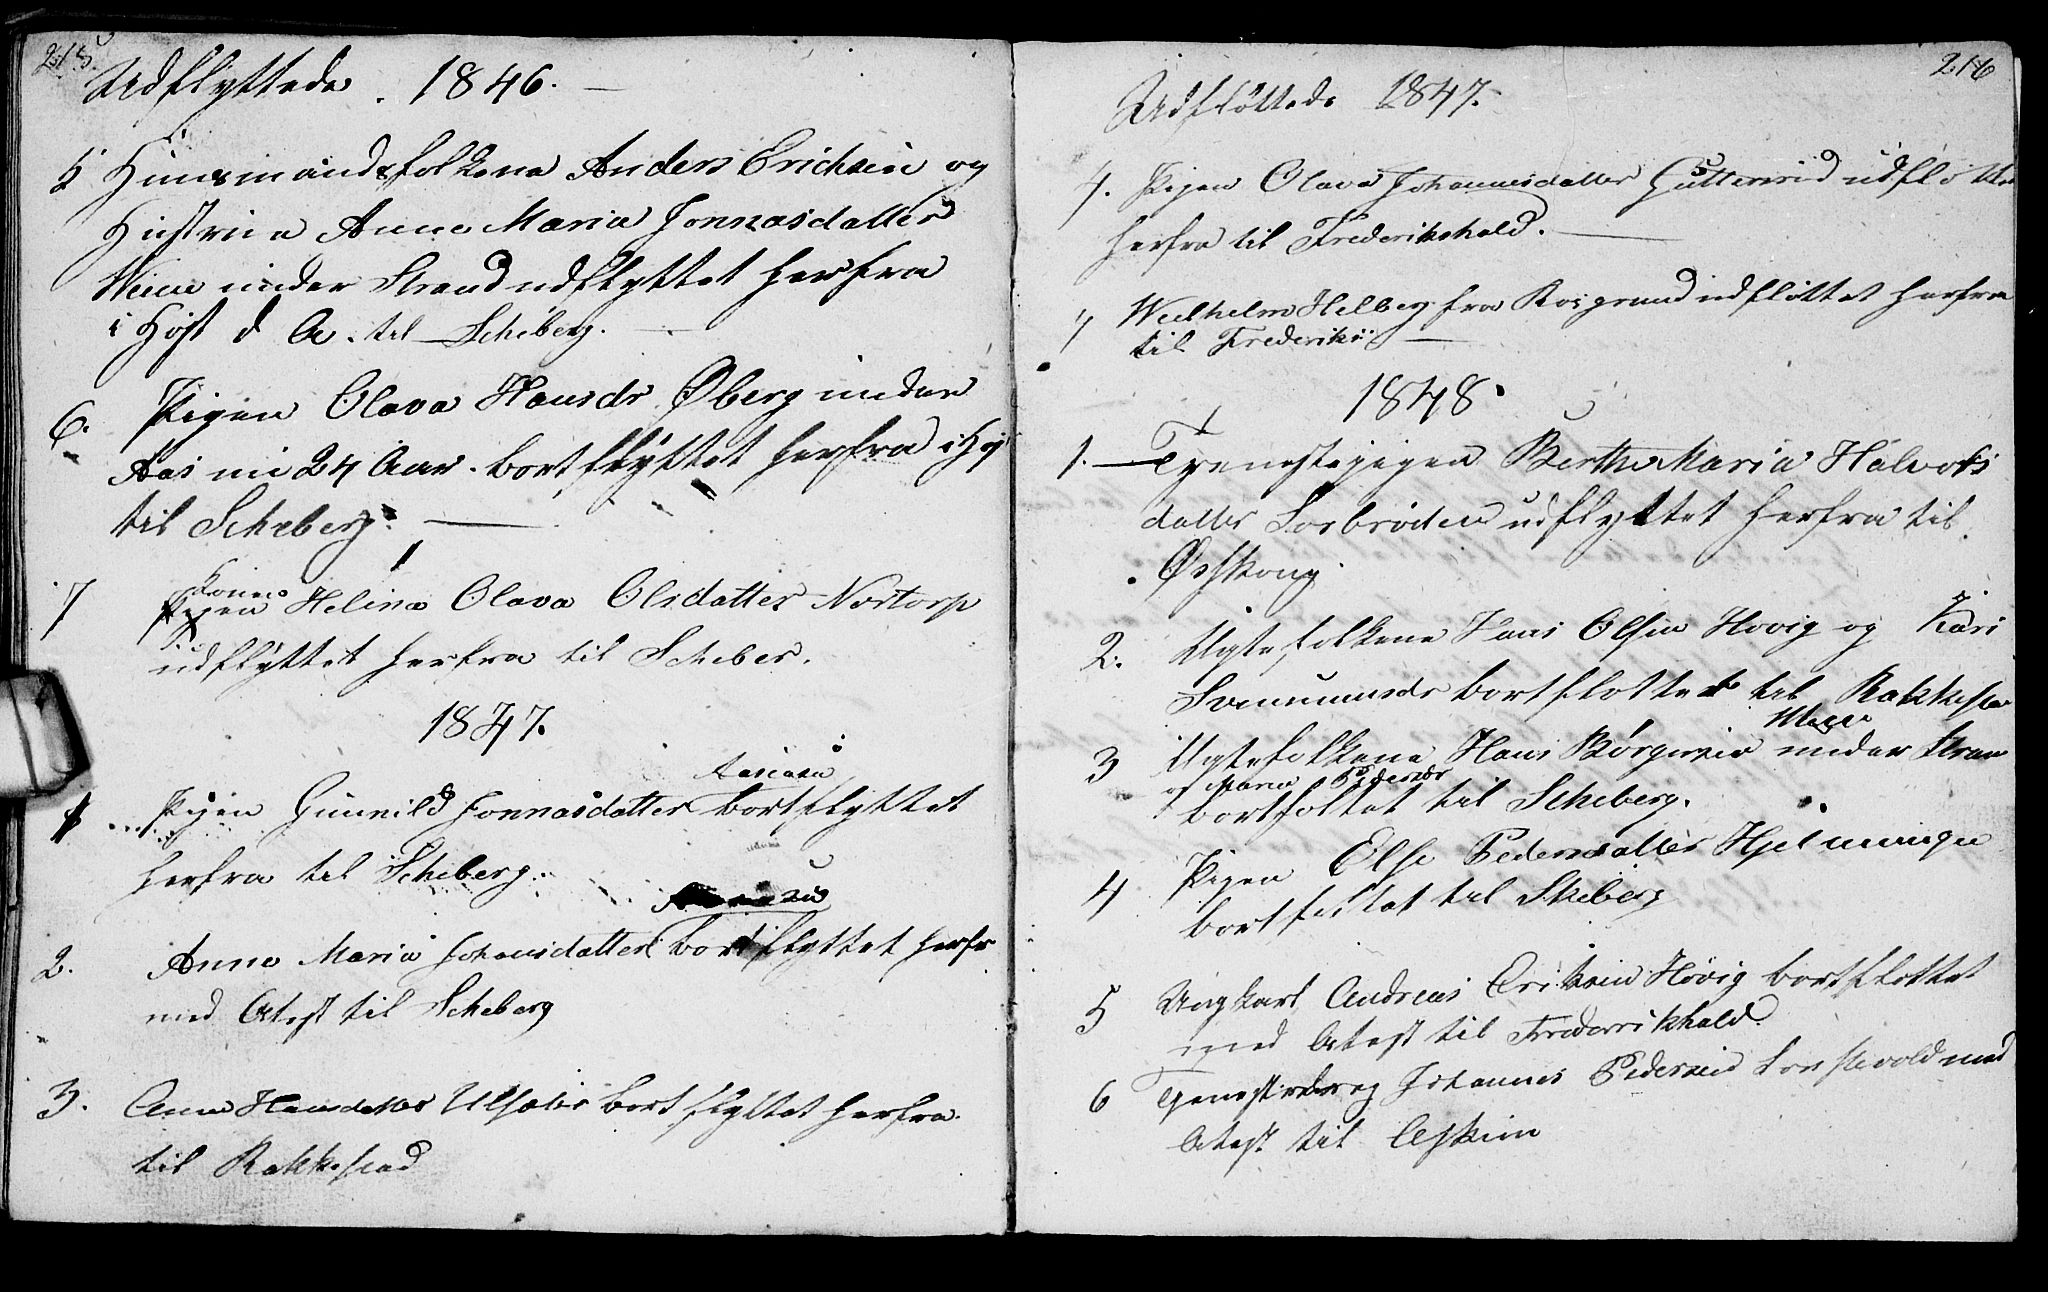 215.
Udflyttede. 1846.
5 Huusmandsfolkene Anders Erichsen og
Hustrue Anne Maria Jonnasdatter
under Strand udflyttet herfra
i Høst d A. til Scheberg.
6. Pigen Olava Hansdr Øberg under
Aas 24 Aar. bortflyttet herfra i
til Scheberg.
7 Konen Helina Olava Olsdatter Nortorp
udflyttet herfra til Scheber.
1847.
1 Pigen Gunnild Jonnasdatter bortflyttet
herfra til Scheberg.
2. Anne Maria Johansdatter bortflyttet herfr
med Atest til Scheberg
3. Anne Hansdatter Ulsæter bortflyttet herfra
til Rakkestad
216
Udfløttede 1847.
4. Pigen Olava Johannesdatter udfløttet
herfra til Frederikshald.
Hellberg fra Rosgrund udfløttet herfra
til Frederiks
1848.
1. Tjenestepigen Berthe Maria Halvors
datter udflyttet herfra til
2. Ægtefolkene Hans Olsen Hovig og Kari
bortfløttet til Rakkesta
3 Ægtefolkene Hans Børgersen under Stran
og Maria Pedersdr
bortfløttet til Scheberg.
4 Pigen Else Pedersdatter
bortfløttet til Skeberg
5 Ungkarl Andreas Eriksen Høvig bortfløttet
med Atest til Frederrikhald.
6 Johannes Pedersen med
Atest til Askim